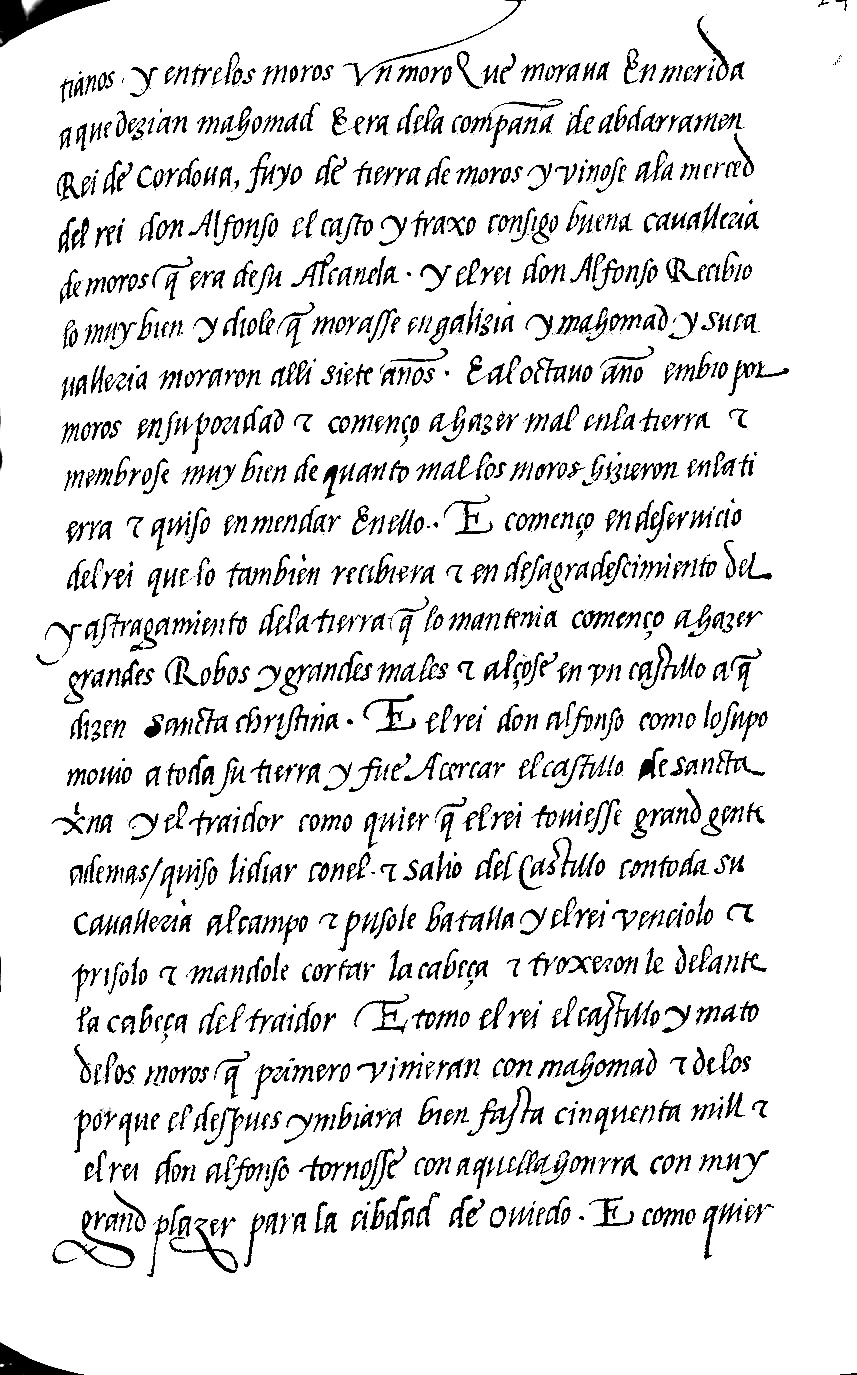 tianos. y entrelos moros Vn moro Que moraua En merida
aque dezian mahomad E era dela compaña de abdarramen
Rei de Cordoua, fuyo de tierra de moros y vinose ala merced
del rei don Alfonso el casto y traxo consigo buena cauallezia
de moros q̃ era de su Alcanela. y el rei don Alfonso Recibio
lo muy bien y diole q̃ morasse en galizia y mahomad y su ca
uallezia moraron alli siete años. E al octauo año embio por
moros en su poridad ⁊ començo a hazer mal enla tierra ⁊
membrose muy bien de quanto mal los moros hizieron enla ti
erra ⁊ quiso enmendar Enello. E començo en deseruicio
del rei que lo tambien recibiera ⁊ en desagradescimiento del
y astragamiento dela tierra q̃ lo mantenia començo a hazer
grandes Robos y grandes males ⁊ alçose en vn castillo a q̃
dizen Sancta christina. E el rei don alfonso como lo supo
mouio a toda su tierra y fue Acercar el castillo de sancta
xꝛ̃na y el traidor como quier q̃ el rei touiesse grand gente
ademas/quiso lidiar conel. ⁊ salio del Castillo contoda su
Cauallezia al campo ⁊ pusole batalla y el rei venciolo ⁊
prisolo ⁊ mandole cortar la cabeça ⁊ troxeron le delante
la cabeça del traidor E tomo el rei el castillo y mato
delos moros q̃ primero vinieran con mahomad ⁊ delos
por que el despues ymbiara bien fasta cinquenta mill ⁊
el rei don alfonso tornosse con aquella honrra con muy
grand plazer para la cibdad de ouiedo. E como quier